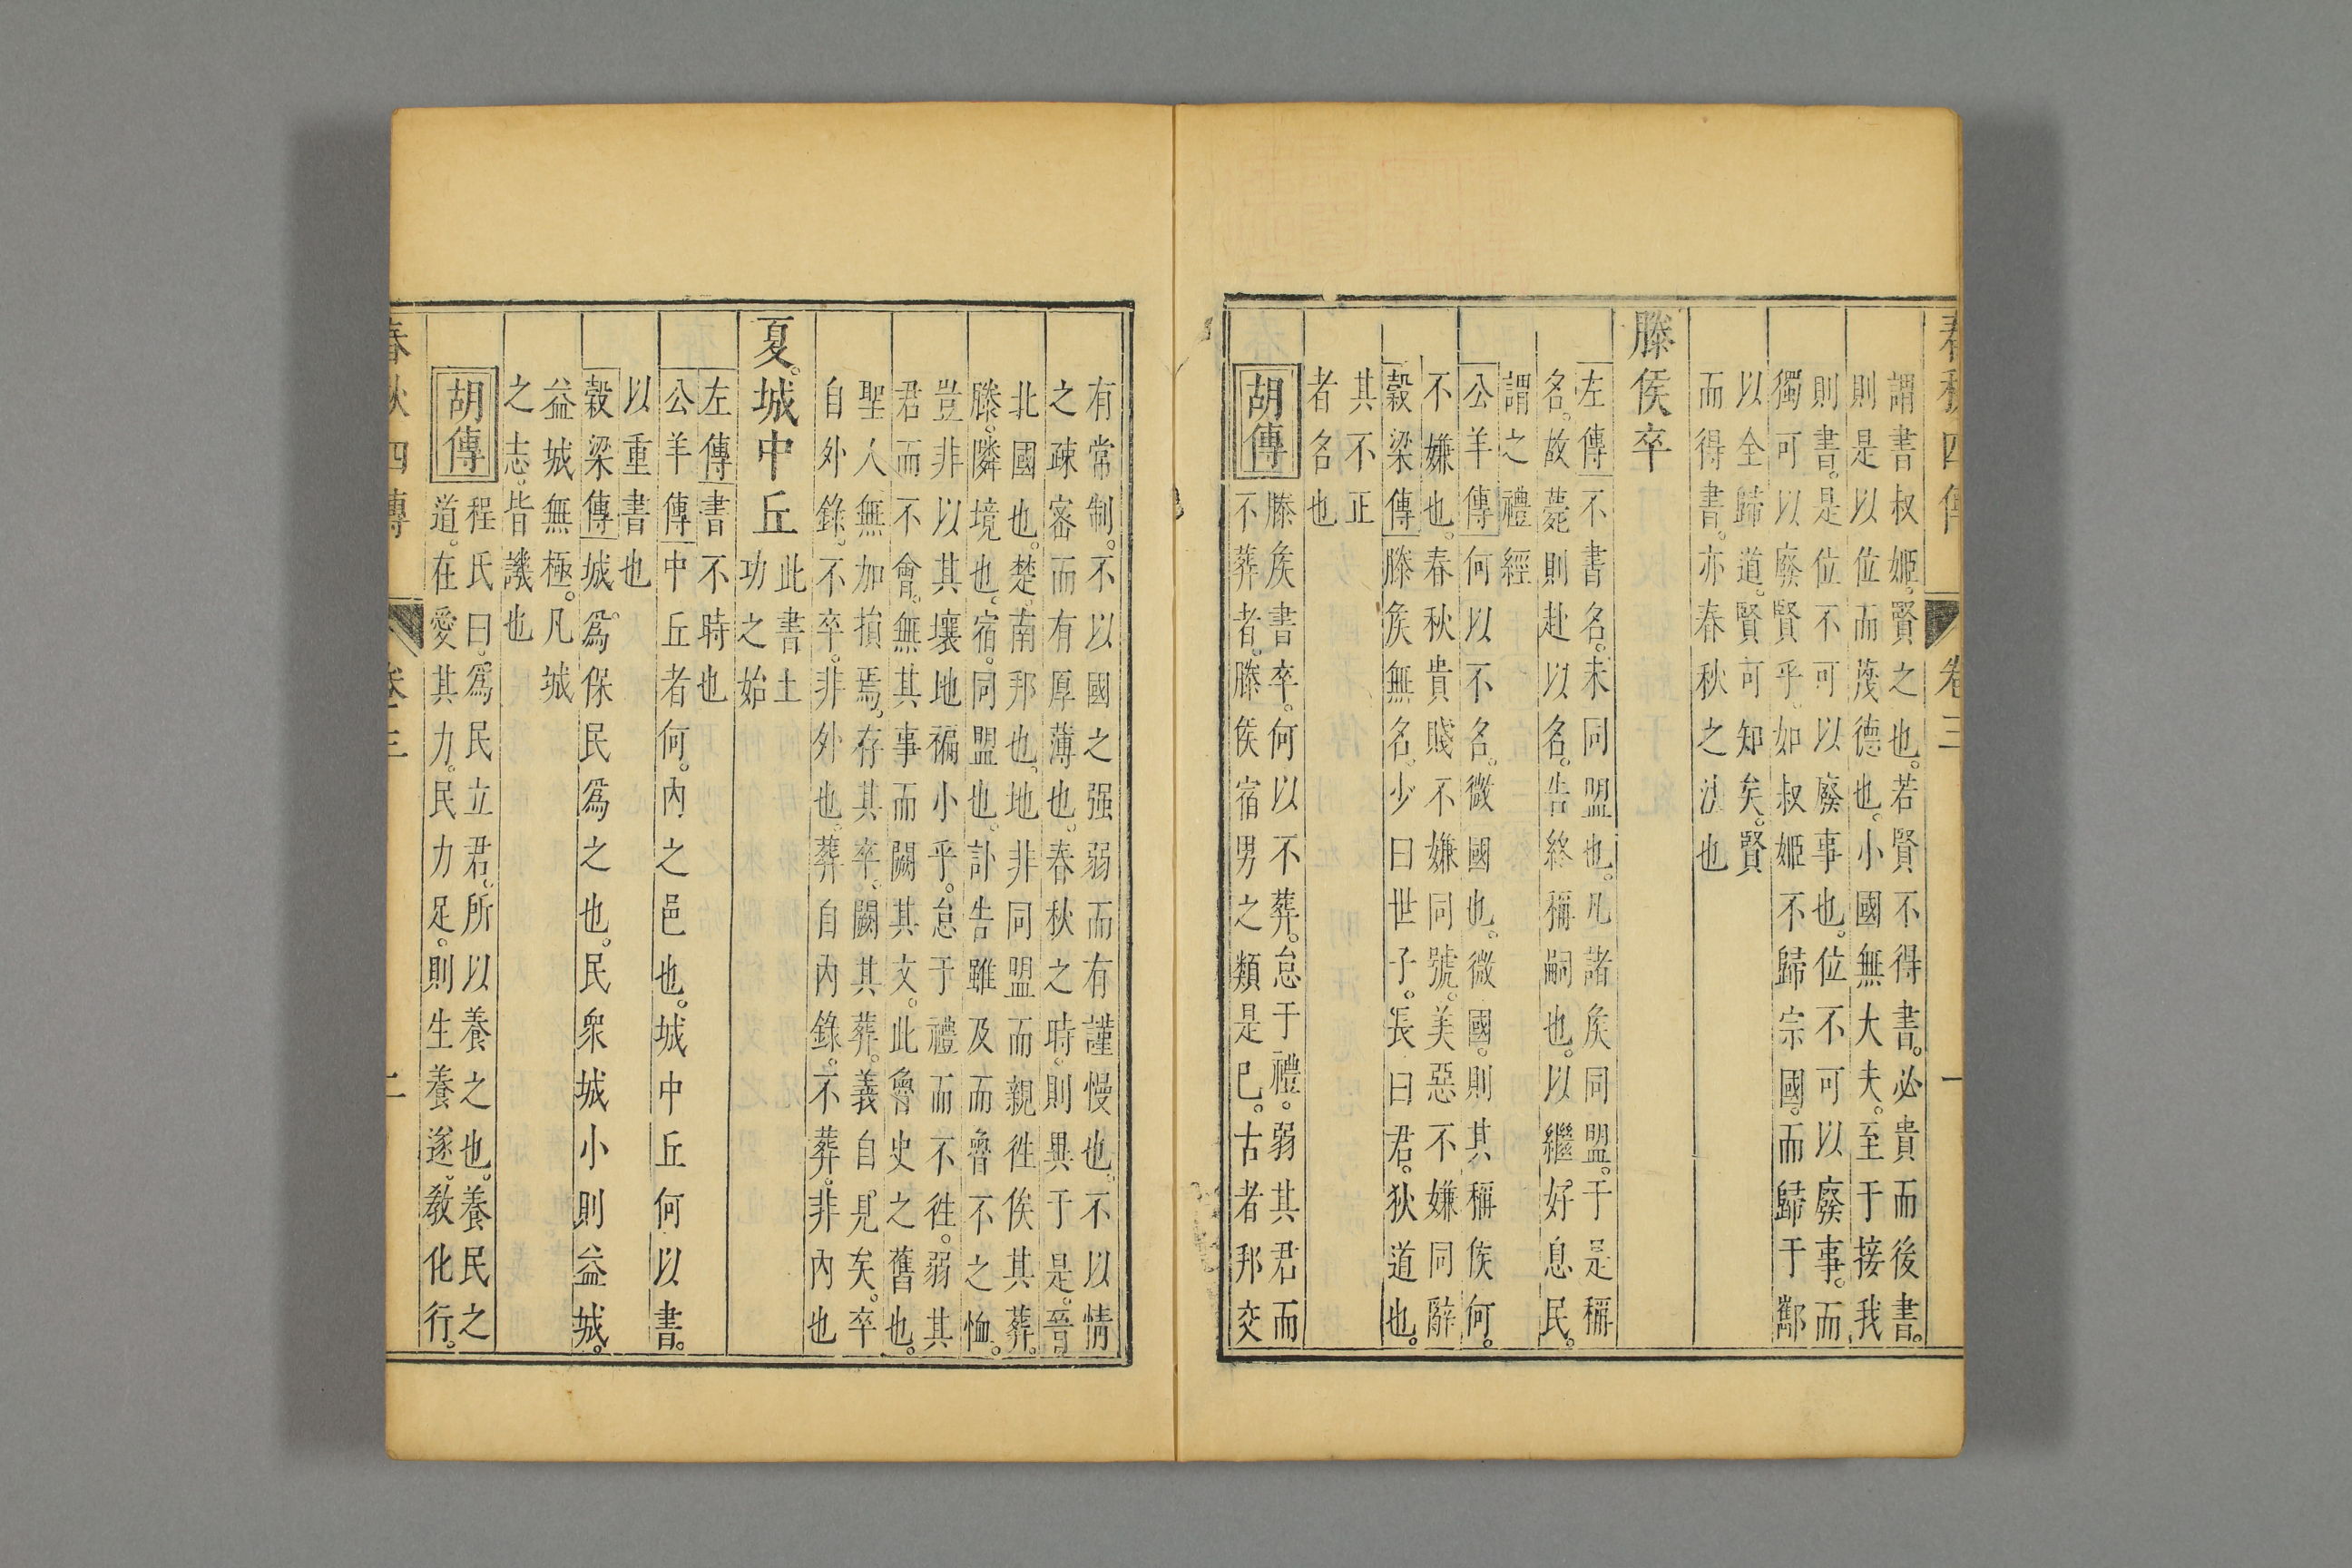 春秋四傳 卷三 一
謂書叔姬賢之也。若賢不得書。必貴而後書。
則是以位而蔑德也。小國無大夫。至于接我
則書。是位不可以廢事也。位不可以廢事。而
獨可以廢賢乎。如叔姬不歸宗國。而歸于酅
以全歸道。賢可知矣。賢
而得書。亦春秋之法也
滕侯卒
左傳不書名。未同盟也。凡諸矦同盟。于是稱
名。故薨則赴以名。告終稱嗣也。以繼好息民。
謂之禮經
公羊傳何以不名。微國也。微國。則其稱侯何。
不嫌也。春秋貴賤不嫌同號。美惡不嫌同辭
穀梁傳滕矦無名。少曰世子。長曰君。狄道也。
其不正
者名也
胡傳滕矦書卒。何以不葬。怠于禮。弱其君而
不葬者。滕侯宿男之類是已。古者邦交
有常制。不以國之强弱而有謹慢也。不以情
之疎密而有厚薄也。春秋之時。則異于是。晉
北國也。楚。南邦也。地非同盟而親徃侯其葬。
滕。隣境也。宿。同盟也。訃告雖及而魯不之恤。
豈非以其壤地褊小乎。怠于禮而不徃。弱其
君而不會。無其事而闕其文。此魯史之舊也。
聖人無加損焉。存其卒。闕其葬。義自見矣。卒
自外錄。不卒。非外也。葬自內錄。不葬。非內也
夏。城中丘
此書土
功之始
左傳書不時也
公羊傳中丘者何。內之邑也。城中丘何以書。
以重書也
穀梁傳城。爲保民爲之也。民衆城小則益城。
益城無極。凡城
之志。皆譏也
胡傳程氏曰。爲民立君。所以養之也。養民之
道。在愛其力。民力足。則生養遂。教化行。
春秋四傳 卷三 二